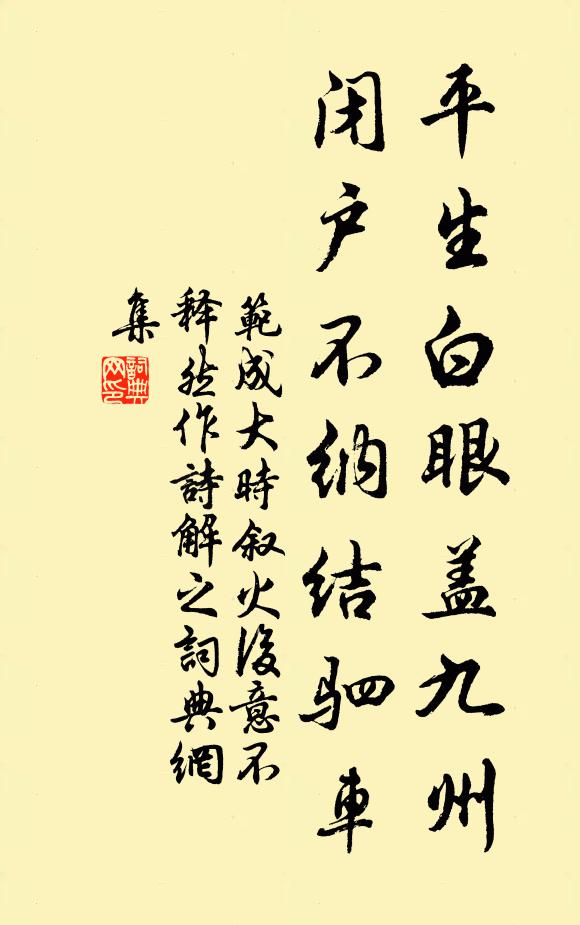 平生白眼盖九州
闭户不纳结驷車
範成大時叙火後意不
释然作詩解之詞典網
集
詞典
网印